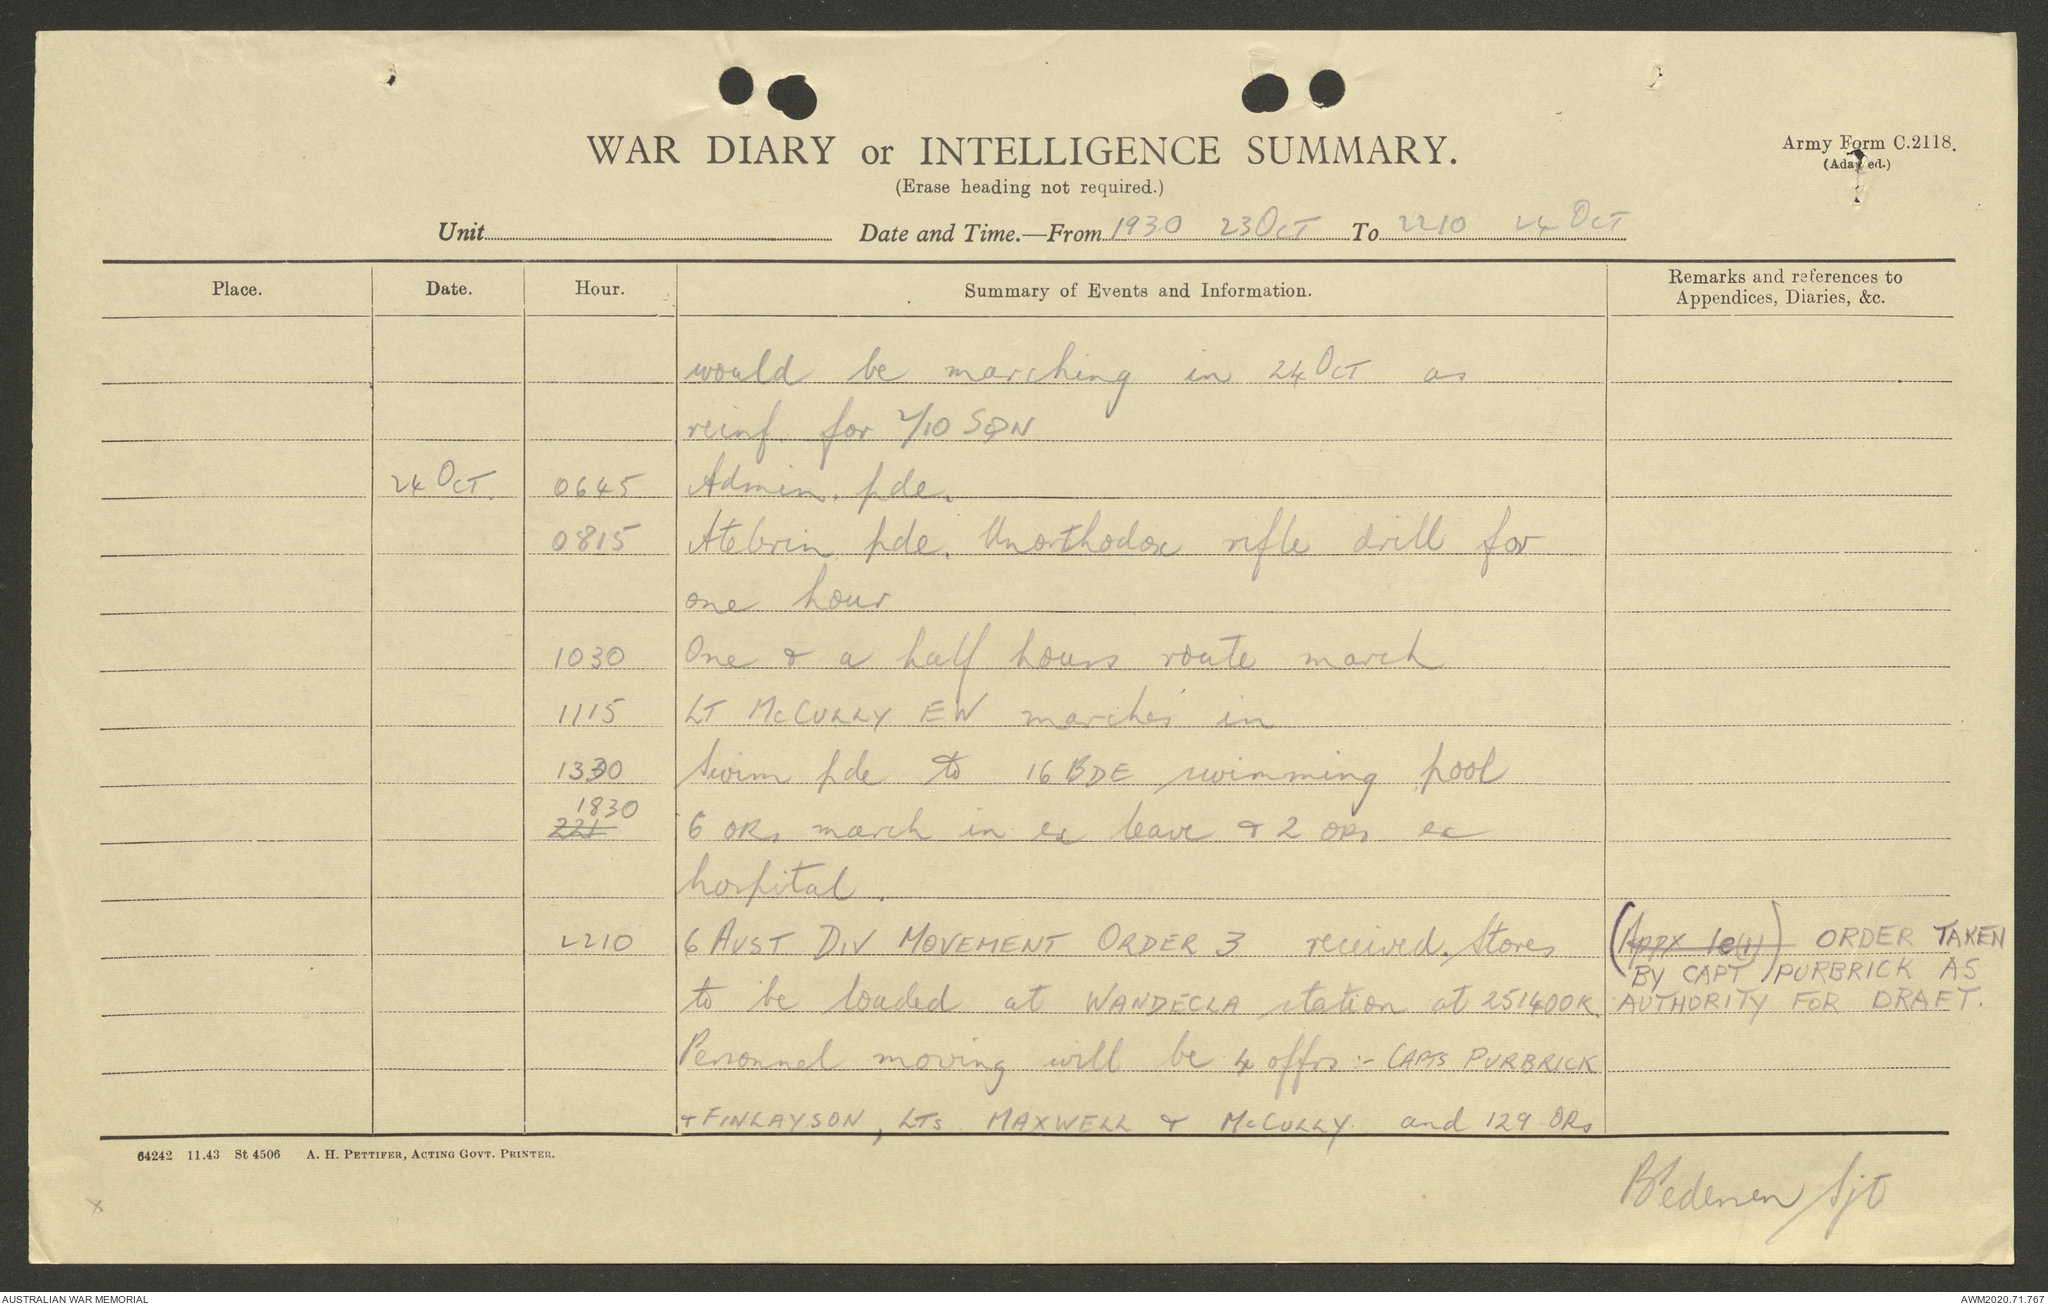 WAR DIARY or INTELLIGENCE SUMMARY.
Army Form C.2118.
(Adapted.)
(Erase heading not required.)
Unit
Date and Time.—From 1930 23 OCT To 2210 24 OCT
Place.
Date.
Hour.
Summary of Events and Information.
Remarks and references to
Appendices, Diaries, &c.
would be marching in 24 OCT as
reinf. for 2/10 SQN
24 OCT. 0645 Admin. pde.
0815 Atebrin pde. Unorthodox rifle drill for
one hour
1030 One & a half hours route march
1115 LT McCULLY EW marches in
1330 Swim pde to 16 BDE swimming pool
1830
221 6 ORs march in ex leave & 2 ORs ex
hospital.
2210 6 AUST DIV MOVEMENT ORDER 3 received. Stores (Appx 1e(1)) ORDER TAKEN
BY CAPT PURBRICK AS
to be loaded at WANDECLA station at 251400K. AUTHORITY FOR DRAFT.
Personnel moving will be 4 offrs :- CAPTS PURBRICK
& FINLAYSON, LTs MAXWELL & McCULLY and 129 ORs
64242 11.43 St 4506 A. H. PETTIFER, ACTING GOVT. PRINTER.
Sjt
x
AUSTRALIAN WAR MEMORIAL
AWM2020.71.767